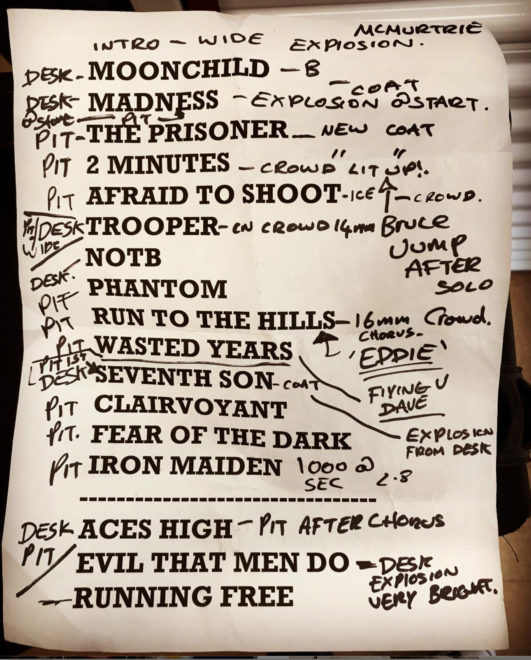 McMURTRIE
INTRO - WIDE EXPLOSION.
DESK - MOONCHILD - B
- COAT
DESK - MADNESS - EXPLOSION @ START.
@ start - PIT - 5
PIT - THE PRISONER - NEW COAT
PIT 2 MINUTES - CROWD "LIT UP"!.
PIT AFRAID TO SHOOT - ICE ↑ - CROWD.
PIT/DESK TROOPER - ON CROWD 14mm Bruce
WIDE JUMP
NOTB AFTER
DESK. SOLO
PIT PHANTOM
PIT RUN TO THE HILLS - 16mm Crowd.
CHORUS -
PIT WASTED YEARS 'EDDIE'
PIT 1ST
DESK SEVENTH SON - COAT FLYING V
DAVE
PIT CLAIRVOYANT
PIT. FEAR OF THE DARK EXPLOSION
FROM DESK
PIT IRON MAIDEN 1000 @
SEC 2.8
DESK ACES HIGH - PIT AFTER CHORUS
PIT EVIL THAT MEN DO - DESK
EXPLOSION
- RUNNING FREE VERY BRIGHT.